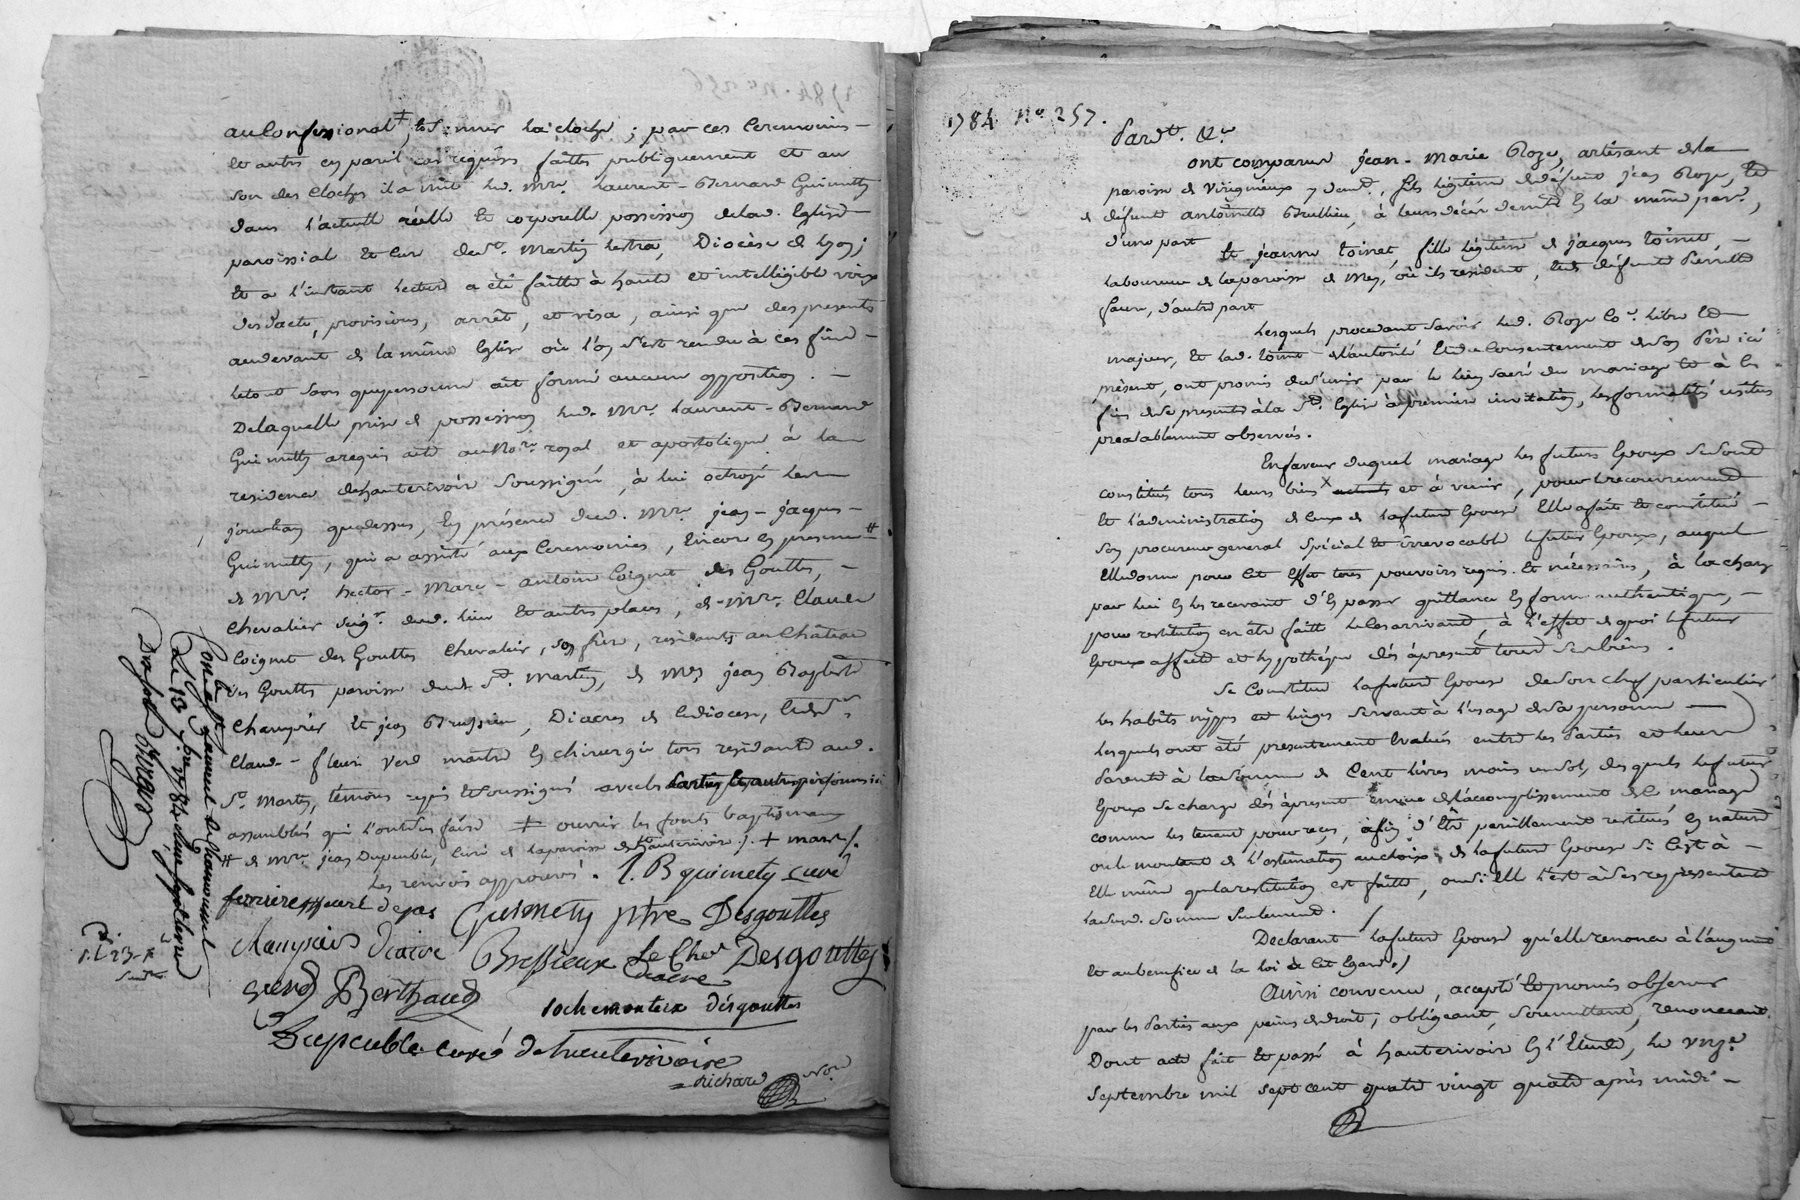 au Confessional ‡, et sonner la cloche ; par ces Ceremonies –
et autres en pareil cas requises faittes publiquement et au
son des cloches il a mis led. Mre. Laurent-Bernard Guimetty
dans l'actuelle réelle et corporelle possession de lad. Eglise
paroissial et cur de St. Martin Lestra, Diocèse de Lyon ;
et a l'instant lecture a été faitte à haute et intelligible voix
desd. acte, provisions, arrêt, et visa, ainsi que des presents
audevant de la même Eglise où l'on s'est rendu à ces fins –
le tout sans que personne ait formé aucune opposition. –
De laquelle prise de possession led. Mre. Laurent-Bernard
Guimetty a requis acte au Nore. royal et apostolique à la
residence d'hauterivoir soussigné, à lui octroyé les
jour & an que dessus, en présence dud. Mre. jean-jacques –
Guimetty, qui a assisté aux Ceremonies, Encore en presence #
de Mre. hector-Marc-antoine Coignet des Gouttes, –
Chevalier seigr. dud. lieu et autres places, de Mre. Claude
Coignet des Gouttes Chevalier, son frere, residants au Château
des Gouttes paroisse dud. St. Martin, de Mes. jean Baptiste
Champrés et jean Bressieu, Diacres de ce diocese,
Claude-fleuri verd maitre en chirurgie tous residants aud.
St. Martin, témoins requis et soussignés avec les parties et autres personnes ici
assemblés qui l'ont sçu faire ‡ ouvrir les fonts baptismaux
# de Mre. jean Dupeuble, Curé de la paroisse de hauterivoir ./. + marc ./.
les renvois approuvés. L. B. guimety curé
ferriere curé de jas Guimety ptre Desgouttes
Champrais diacre Bressieux diacre Le Cher Desgouttes
verd Berthaud rochemonteix désgouttes
Dupeuble curé de hauterivoire
Richard Nore
Conlé & scammel de hamounet
Le 13 7bre 1784
1784 No 257.
Pardt. &c
ont comparu jean-marie Roze, artisant de la
paroisse de virigneux y demt., fils légitime de défunt jean Roze, et
de défunte antoinette Brullieu, à leurs décès demts en la même parse.,
d'une part
Et jeanne toinet, fille légitime de jacques toinet, –
laboureur de la paroisse de Meys, où ils resident, et de défunte Pierrette
faure, d'autre part
Lesquels procedant savoir led. Roze Coe. libre et
majeur, et lad. toinet de l'autorité et du consentement de son Père ici
présent, ont promis de s'unir par le lien sacré du mariage et à ces
fins de se presenter à la Ste. Eglise à premiere invitation, les formalités usitées
prealablement observées.
En faveur duquel mariage les futurs Epoux se sont
constitués tous leurs biens x actuels et à venir, pour le recouvrement
et l'administration de ceux de la future Epouse Elle a fait et constitué –
son procureur general spécial et irrevocable le futur Epoux, auquel
Elle donne pour cet effet tous pouvoirs requis et nécessaires, à la charge
par lui en les recevant d'en passer quittance en forme authentique, –
pour restitution en être faitte le cas arrivant, à l'effet de quoi le futur
Epoux affecte et hypothéque dès àpresent tous ses biens.
Se Constitue la future Epouse de son chef particulier
les habits nippes et linges servant à l'usage de sa personne —
lesquels ont été presentement évalués entre les parties et leurs
parents à la somme de Cent livres moins un sol, desquels le futur
Epoux se charge dès àpresent en vue de l'accomplissement de ce mariage
comme les tenant pour reçus, afin d'être pareillement restitués en nature
ou le montant de l'estimation au choix de la future Epouse si c'est à –
Elle même que la restitution est faitte, ou si Elle l'est à ses représentants
lad. somme seulement. /
Declarant la future Epouse qu'elle renonce à l'augment
et au benefice de la loi à cet Egard. /
Ainsi convenu, accepté et promis observer
par les Parties aux peines de droit ; obligeant, soumettant, renonceant.
Dont acte fait et passé à hauterivoir en l'Etude, le onze
septembre mil sept cent quatre vingt quatre après midi –